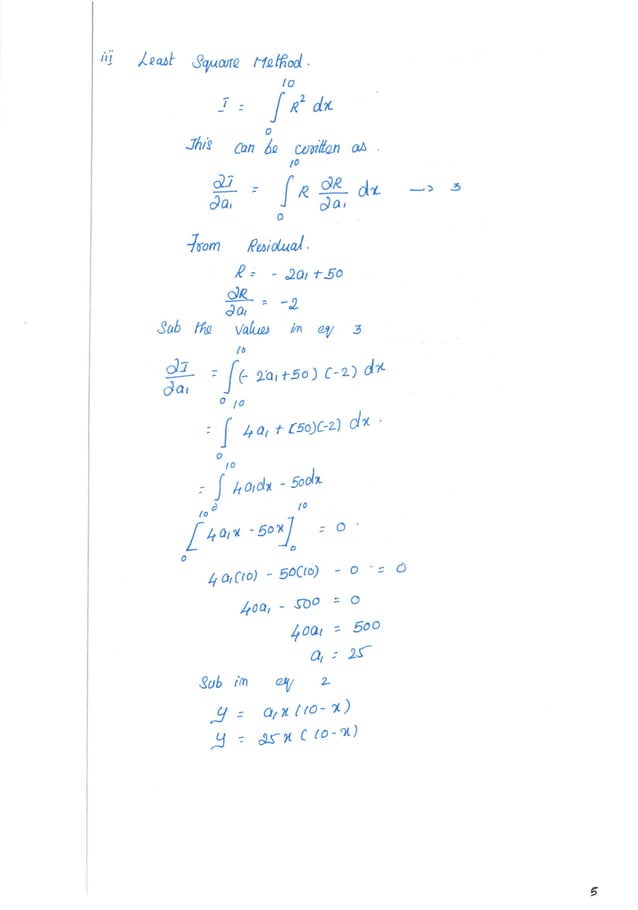 iii] Least Square Method.
I = ∫₀¹⁰ R² dx
This can be written as.
∂I/∂a₁ = ∫₀¹⁰ R ∂R/∂a₁ dx → 3
From Residual.
R = - 2a₁ + 50
∂R/∂a₁ = -2
Sub the values in eq 3
∂I/∂a₁ = ∫₀¹⁰ (- 2a₁+50) (-2) dx
= ∫₀¹⁰ 4a₁ + (50)(-2) dx.
= ∫₀¹⁰ 4a₁dx - 50dx
₀¹⁰[4a₁x - 50x]₀¹⁰ = 0.
4a₁(10) - 50(10) - 0 = 0
40a₁ - 500 = 0
40a₁ = 500
a₁ = 25
Sub in eq 2
y = a₁x (10-x)
y = 25x (10-x)
5